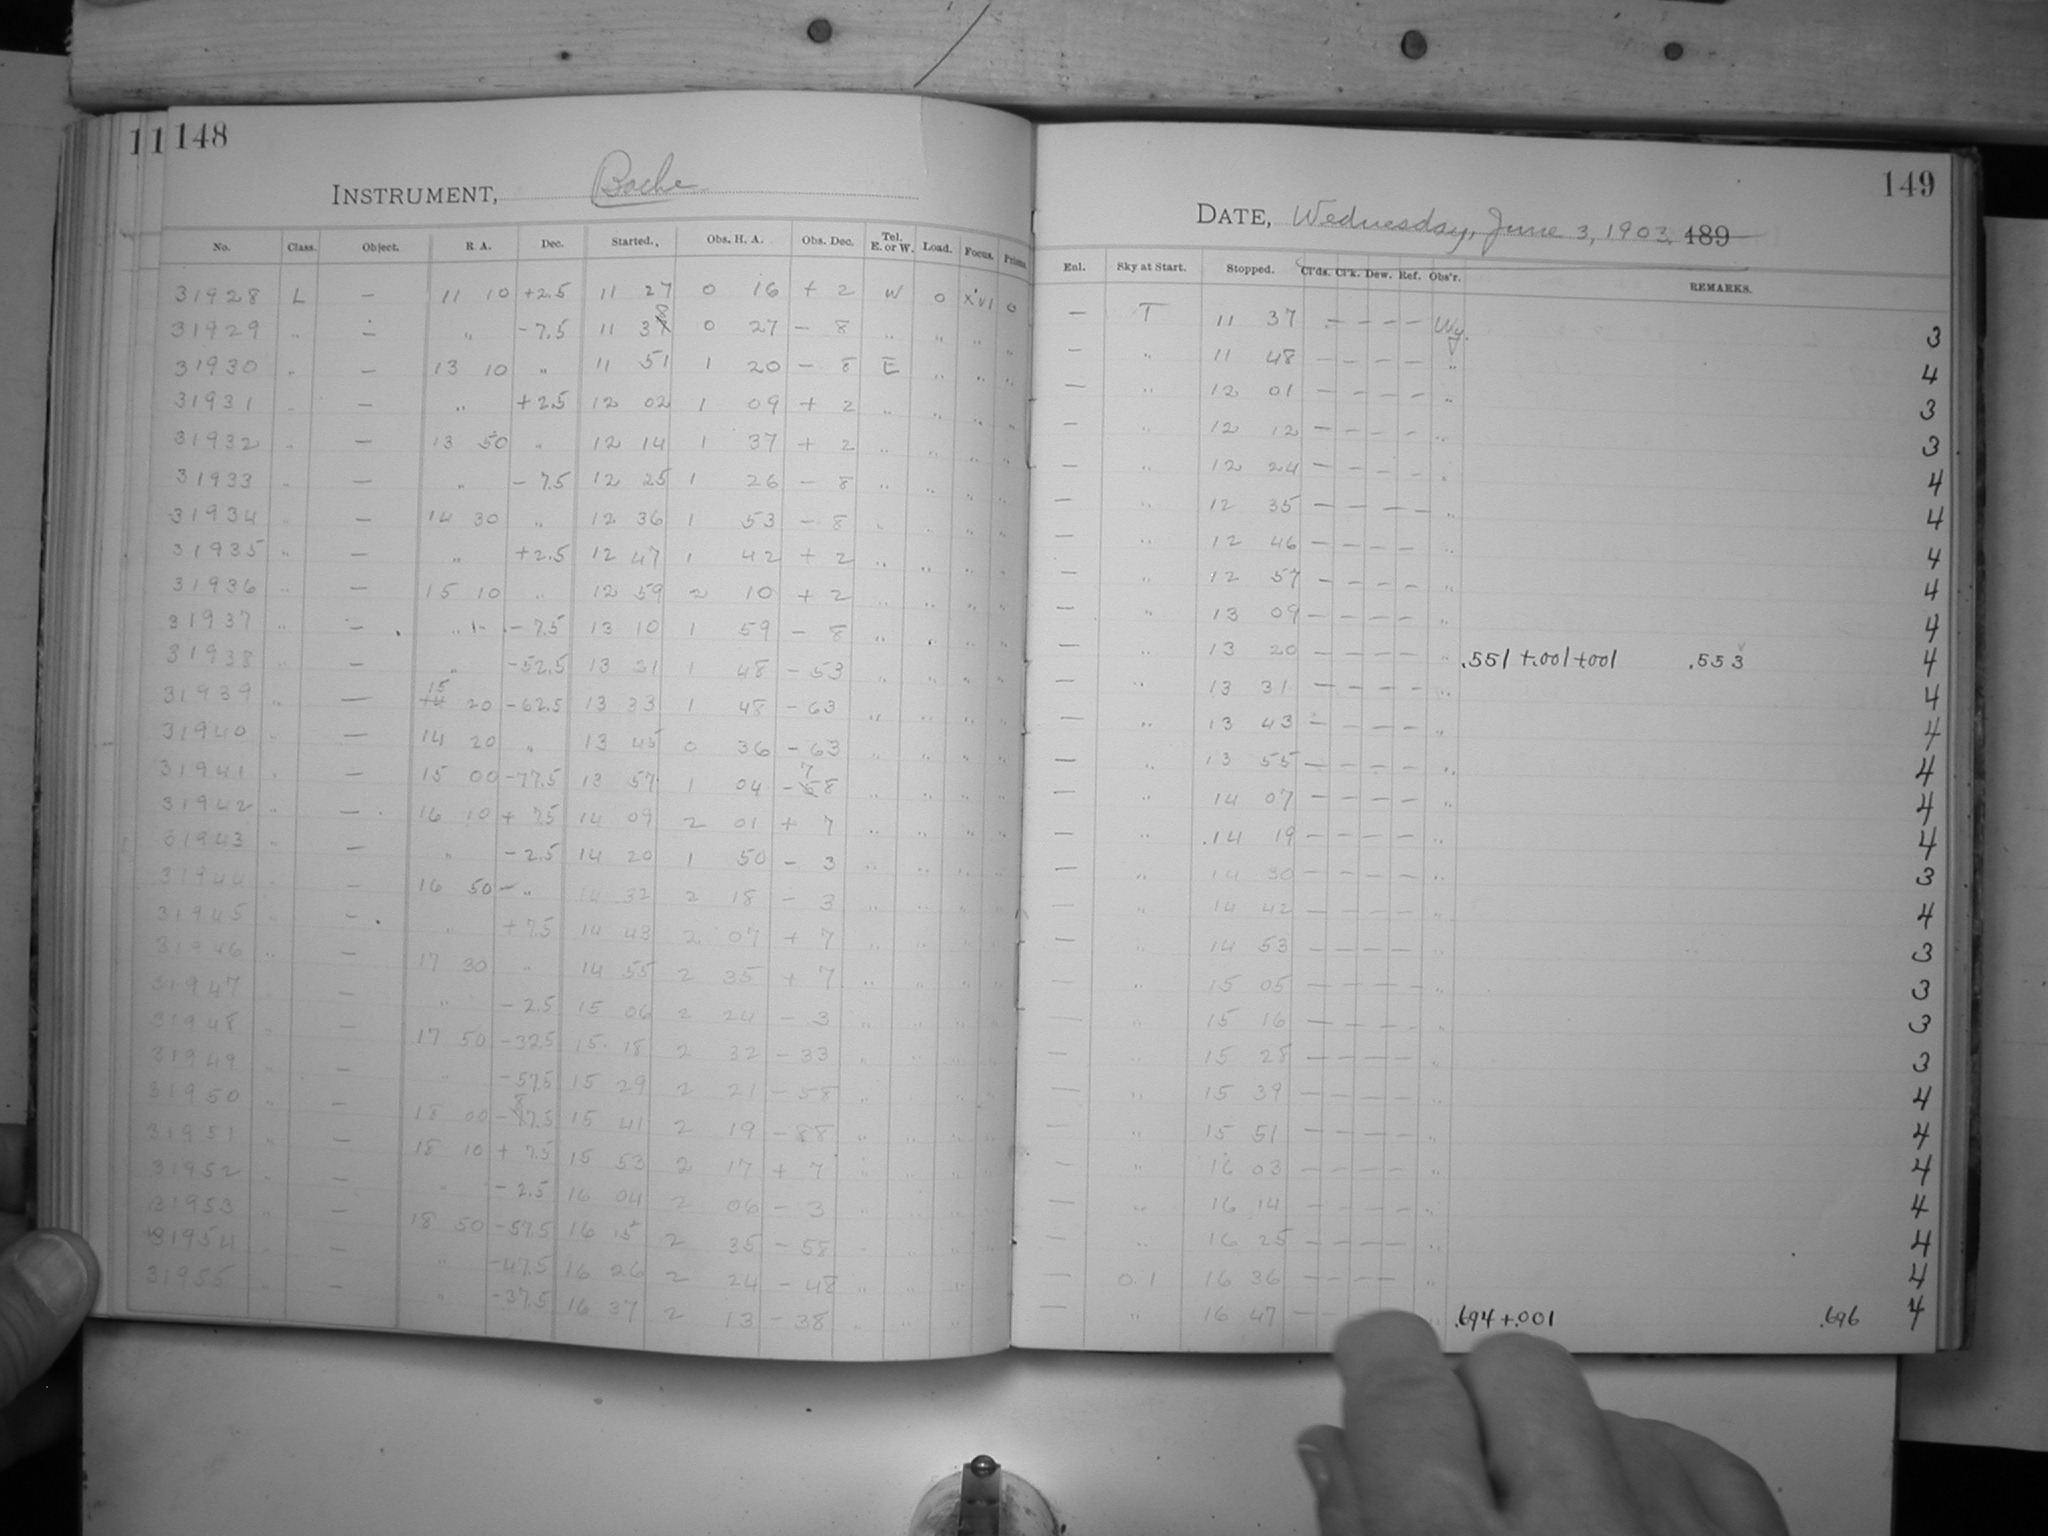 11 148
INSTRUMENT, Bache
No. Class. Object. R. A. Dec. Started. Obs. H. A. Obs. Dec. Tel. E. or W. Load. Focus. Prisms.
31928 L — 11 10 +2.5 11 27 0 16 + 2 W 0 xvi 0
31929 " — " -7.5 11 38 0 27 - 8 " " " "
31930 " — 13 10 " 11 51 1 20 - 8 E " " "
31931 " — " +2.5 12 02 1 09 + 2 " " " "
31932 " — 13 50 " 12 14 1 37 + 2 " " " "
31933 " — " -7.5 12 25 1 26 - 8 " " " "
31934 " — 14 30 " 12 36 1 53 - 8 " " " "
31935 " — " +2.5 12 47 1 42 + 2 " " " "
31936 " — 15 10 " 12 59 2 10 + 2 " " " "
31937 " — " -7.5 13 10 1 59 - 8 " " " "
31938 " — " -52.5 13 21 1 48 -53 " " " "
31939 " — 15 20 -62.5 13 33 1 48 -63 " " " "
31940 " — 14 20 " 13 45 0 36 -63 " " " "
31941 " — 15 00 -77.5 13 57 1 04 -78 " " " "
31942 " — 16 10 +7.5 14 09 2 01 + 7 " " " "
31943 " — " -2.5 14 20 1 50 - 3 " " " "
31944 " — 16 50 " 14 32 2 18 - 3 " " " "
31945 " — " +7.5 14 43 2 07 + 7 " " " "
31946 " — 17 30 " 14 55 2 35 + 7 " " " "
31947 " — " -2.5 15 06 2 24 - 3 " " " "
31948 " — 17 50 -32.5 15 18 2 32 -33 " " " "
31949 " — " -57.5 15 29 2 21 -58 " " " "
31950 " — 18 00 -87.5 15 41 2 19 -88 " " " "
31951 " — 18 10 +7.5 15 53 2 17 + 7 " " " "
31952 " — " -2.5 16 04 2 06 - 3 " " " "
31953 " — 18 50 -57.5 16 15 2 35 -58 " " " "
31954 " — " -47.5 16 26 2 24 -48 " " " "
31955 " — " -37.5 16 37 2 13 -38 " " " "
149
DATE, Wednesday, June 3, 1903. 189
Enl. Sky at Start. Stopped. Cl'ds. Cl'k. Dew. Ref. Obs'r. REMARKS.
— T 11 37 — — — — Wy. 3
— " 11 48 — — — — " 4
— " 12 01 — — — — " 3
— " 12 12 — — — — " 3
— " 12 24 — — — — " 4
— " 12 35 — — — — " 4
— " 12 46 — — — — " 4
— " 12 57 — — — — " 4
— " 13 09 — — — — " 4
— " 13 20 — — — — " .551 +.001+001 .553 4
— " 13 31 — — — — " 4
— " 13 43 — — — — " 4
— " 13 55 — — — — " 4
— " 14 07 — — — — " 4
— " 14 19 — — — — " 4
— " 14 30 — — — — " 3
— " 14 42 — — — — " 4
— " 14 53 — — — — " 3
— " 15 05 — — — — " 3
— " 15 16 — — — — " 3
— " 15 28 — — — — " 3
— " 15 39 — — — — " 4
— " 15 51 — — — — " 4
— " 16 03 — — — — " 4
— " 16 14 — — — — " 4
— " 16 25 — — — — " 4
— 0.1 16 36 — — — — " 4
— " 16 47 — — " .694+.001 .696 4